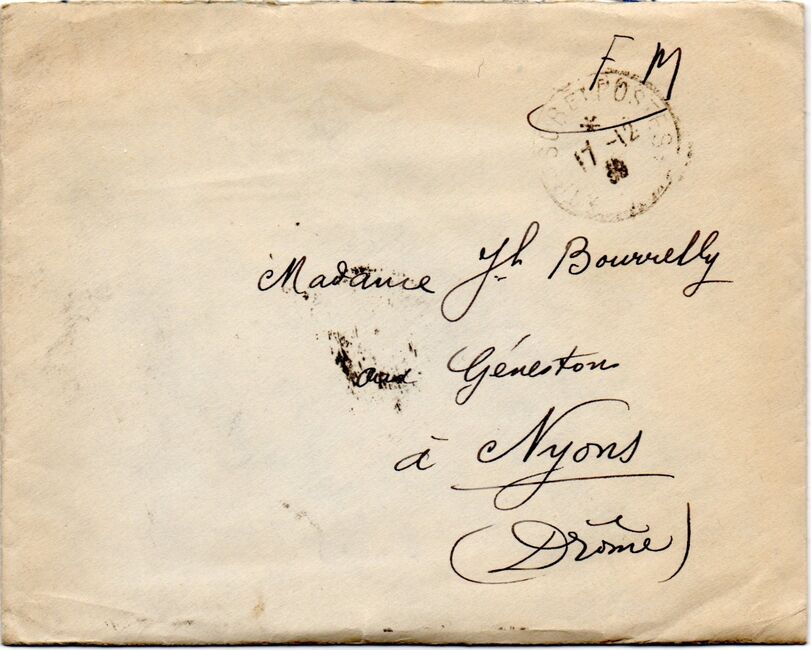 F M
POSTES
17 -12
Madame Jh Bourrelly
aux Génestons
à Nyons
(Drôme)